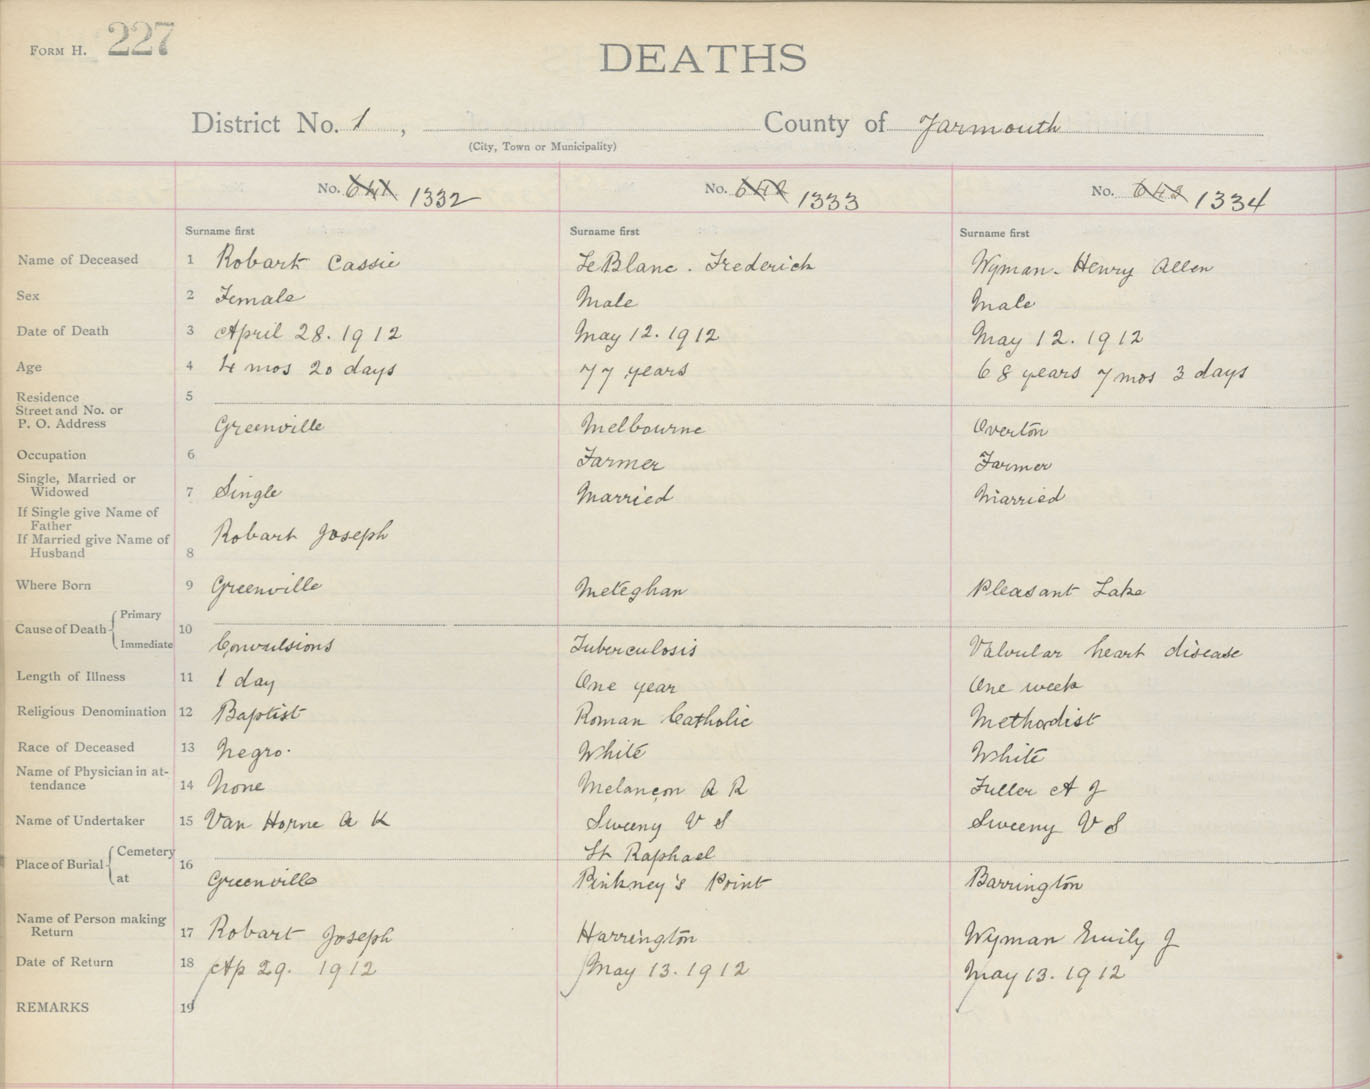 FORM H. 227
DEATHS
District No. 1, County of Yarmouth
(City, Town or Municipality)
No. 641 1332 No. 642 1333 No. 643 1334
Surname first Surname first Surname first
Name of Deceased 1 Robart Cassie LeBlanc. Frederick Wyman- Henry Allen
Sex 2 Female Male Male
Date of Death 3 April 28. 1912 May 12. 1912 May 12. 1912
Age 4 4 mos 20 days 77 years 68 years 7 mos 3 days
Residence 5
Street and No. or
P. O. Address Greenville Melbourne Overton
Occupation 6 Farmer Farmer
Single, Married or
Widowed 7 Single Married Married
If Single give Name of
Father
If Married give Name of Robart Joseph
Husband 8
Where Born 9 Greenville Meteghan Pleasant Lake
Primary
Cause of Death 10
Immediate Convulsions Tuberculosis Valvular heart disease
Length of Illness 11 1 day One year One week
Religious Denomination 12 Baptist Roman Catholic Methodist
Race of Deceased 13 Negro. White White
Name of Physician in at-
tendance 14 None Melançon A R Fuller A J
Name of Undertaker 15 Van Horne A K Sweeny V S Sweeny V S
Cemetery St Raphael
Place of Burial 16
at Greenville Pinkney's Point Barrington
Name of Person making
Return 17 Robart Joseph Harrington Wyman Emily J
Date of Return 18 Ap 29. 1912 May 13. 1912 May 13. 1912
REMARKS 19